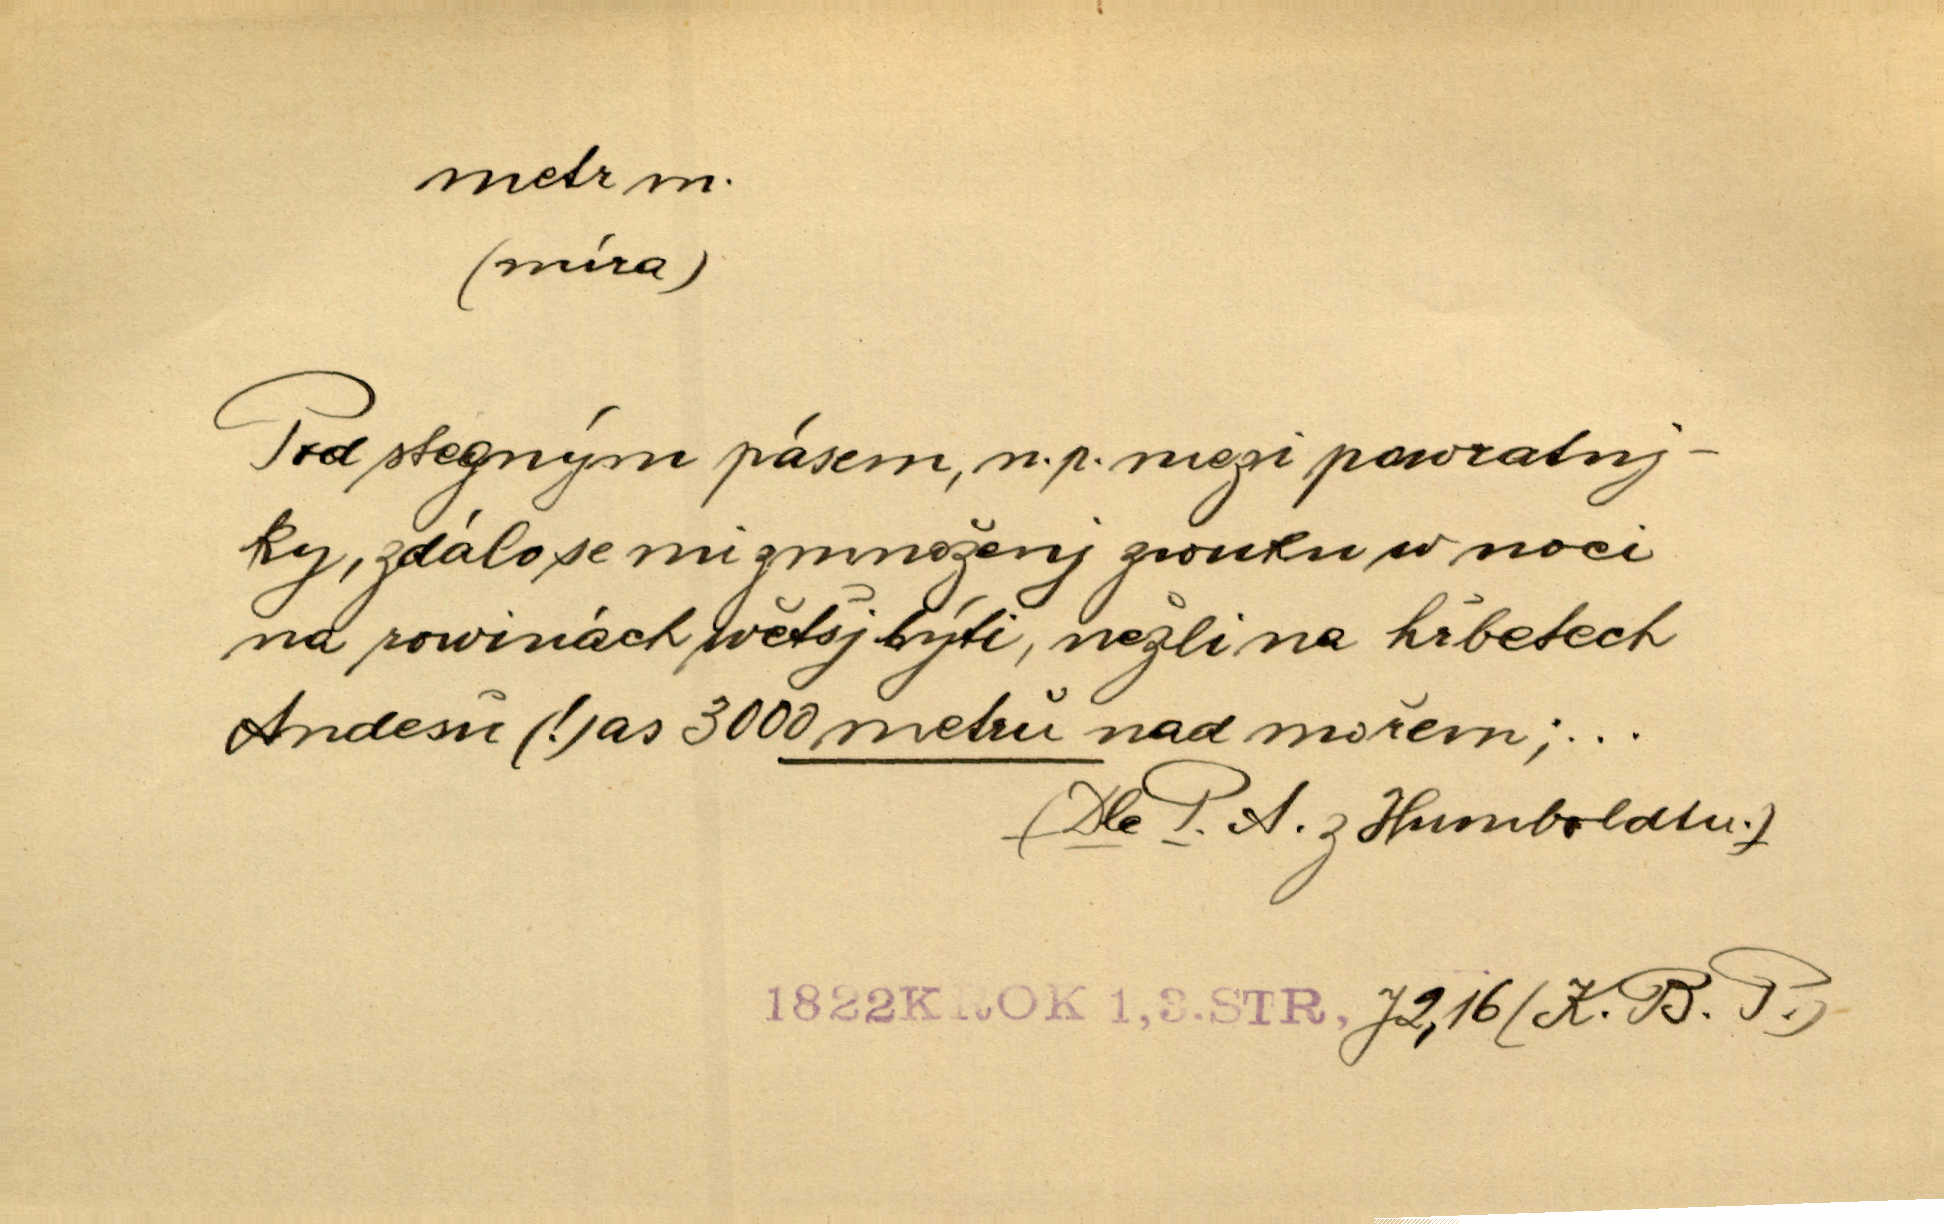 metr m.
(míra)
Pod stegným pásem, n. p. mezi powratnj-
ky, zdálo se mi zmnoženj zwuku w noci
na rowinách wětšj býti, nežli na hřbetech
Andesů (!) as 3000 metrů nad mořem; ...
(Dle P. A. z Humboldtu.)
1822 KROK 1, 3. STR, 72, 16 (K. B. P.)